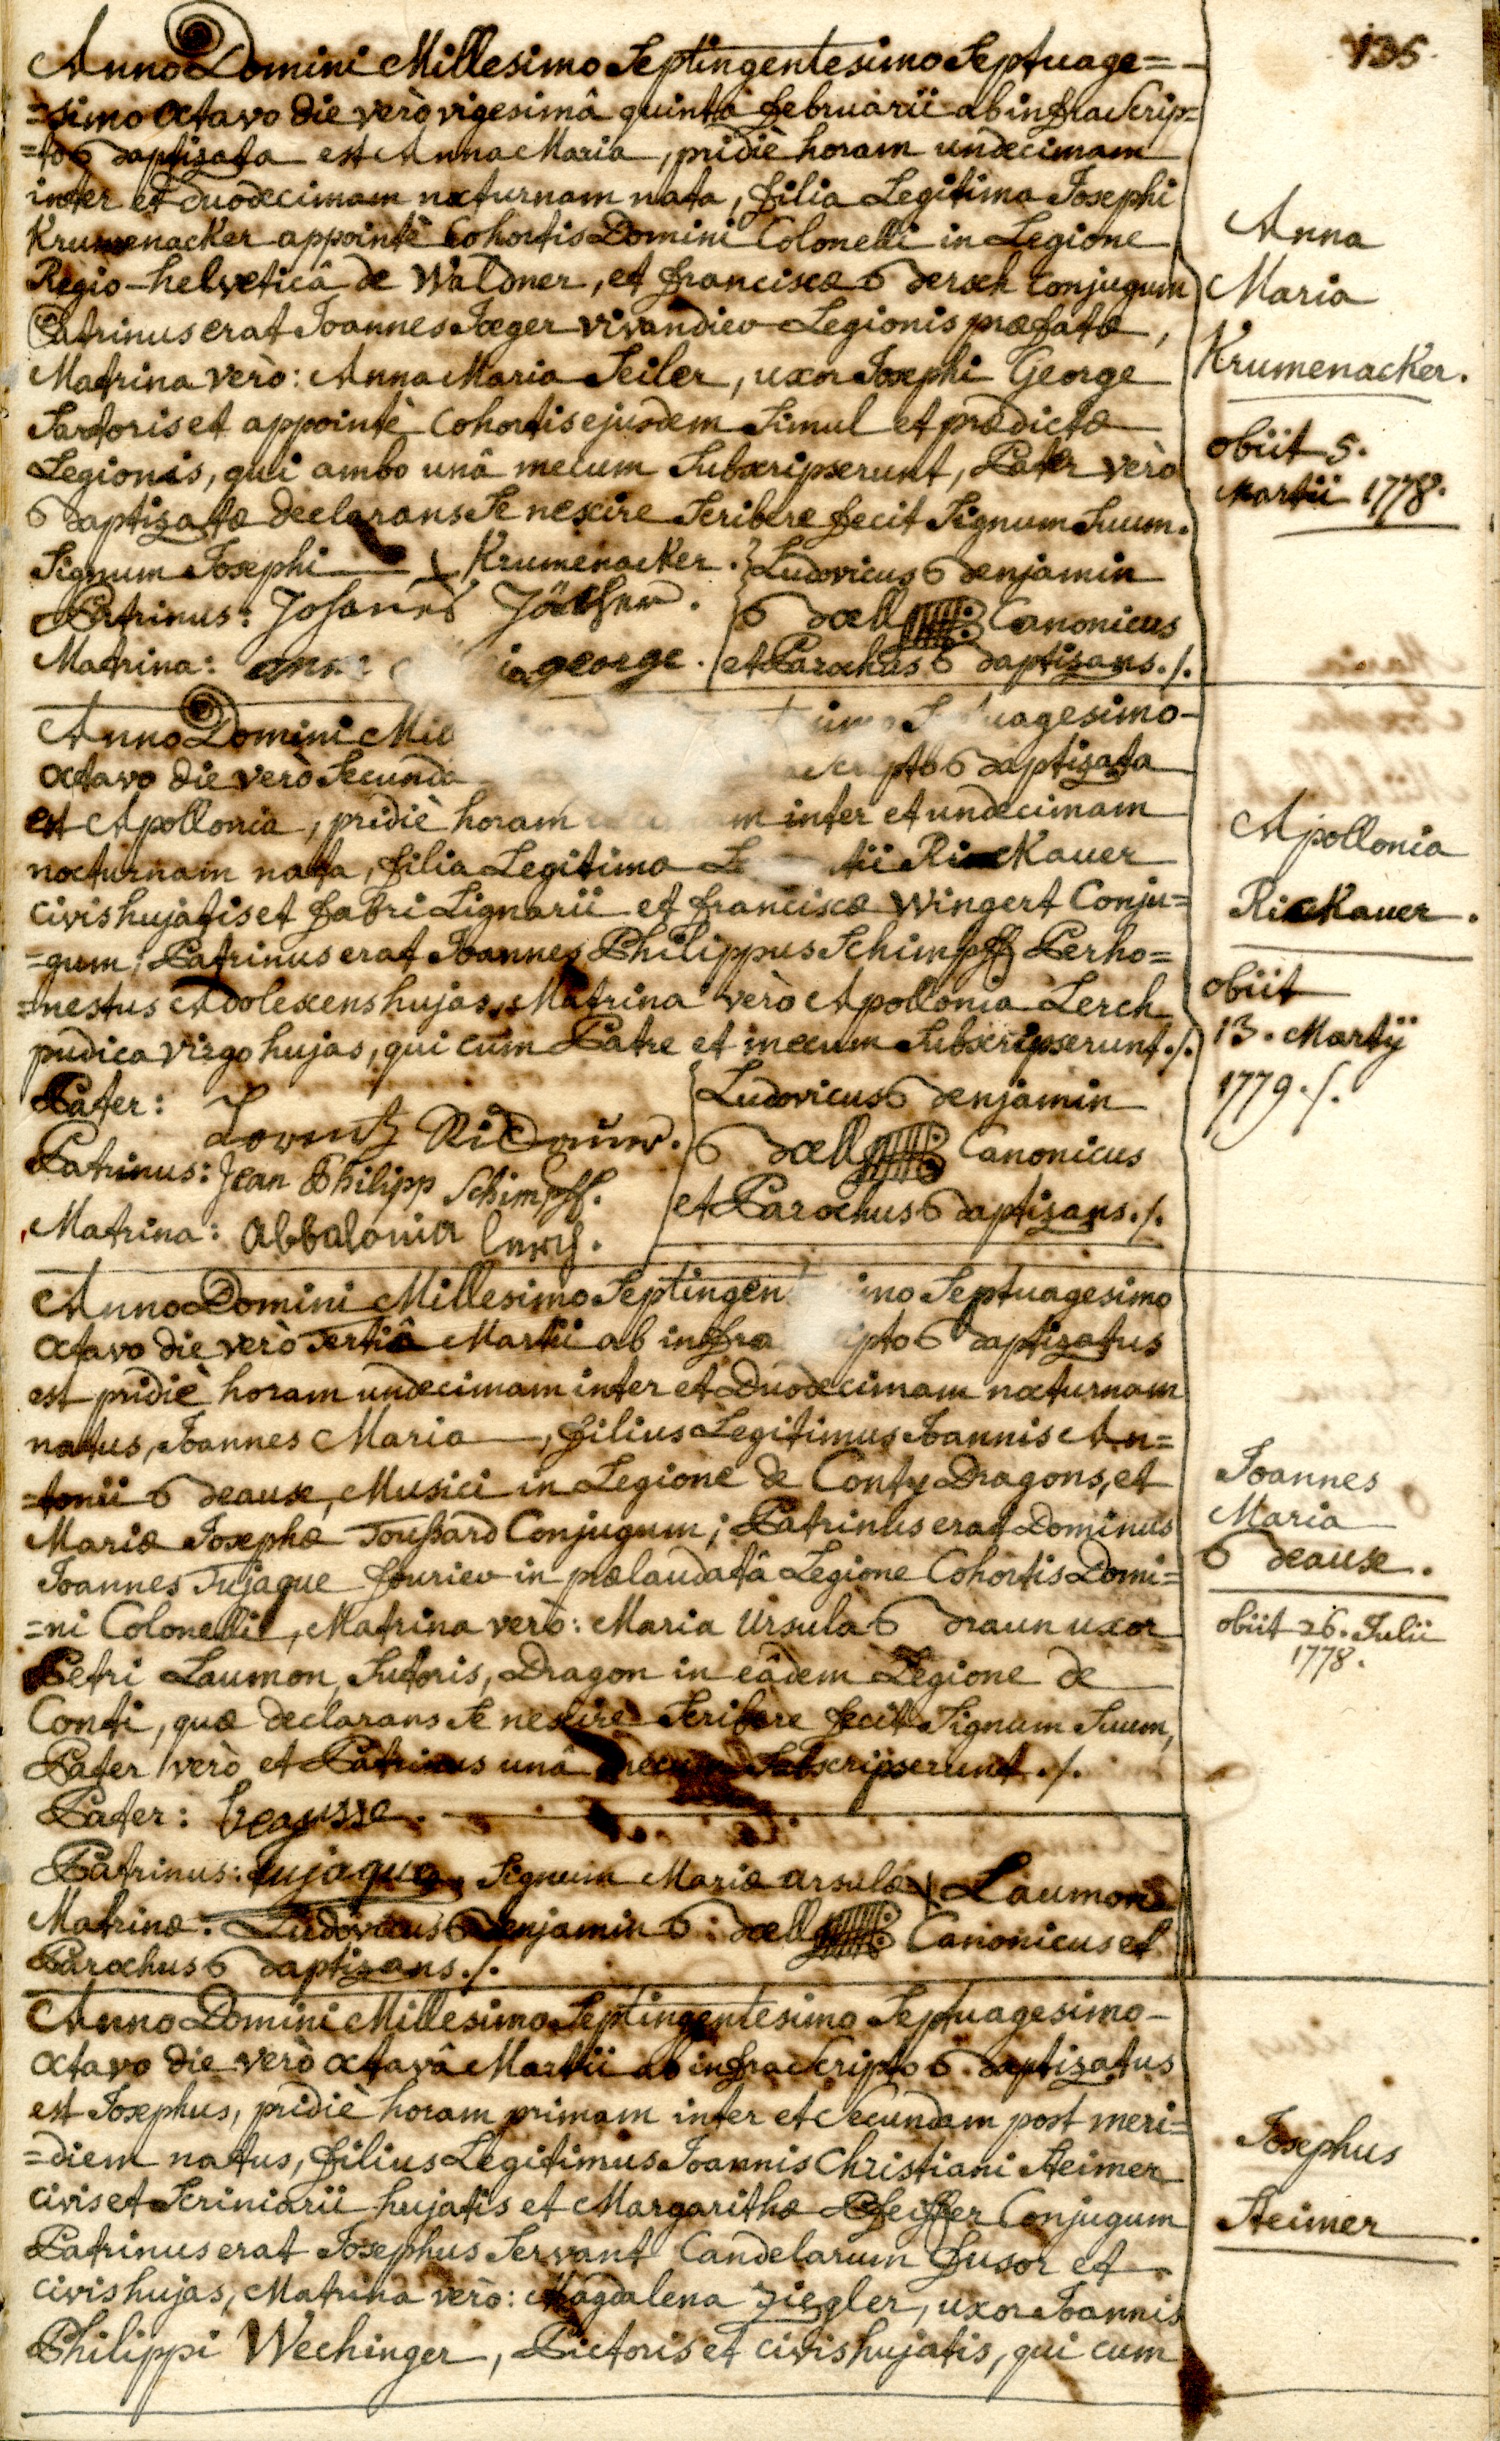 135.
Anno Domini Millesimo Septingentesimo Septuage=
=simo octavo die verò vigesimâ quintâ februarii ab infra Scrip=
=to Baptizata est Anna Maria, pridiè horam undecimam
inter et duodecimam nocturnam nata, filia Legitima Josephi
Krumenacker appointé Cohortis Domini Colonelli in Legione
Regio-helveticâ de Waldner, et franciscæ Beroch Conjugum
Patrinus erat Joannes Jæger vivandier Legionis præfatæ,
Matrina verò: Anna Maria Seiler, uxor Josephi George
Sartoris et appointé Cohortis ejusdem Simul et prædictæ
Legionis, qui ambo unâ mecum Subscripserunt, Pater verò
Baptizatæ declarans Se nescire Scribere fecit Signum Suum.
Signum Josephi + Krumenacker.
Patrinus: Johannes
Matrina: george.
Ludovicus Benjamin
Boell Canonicus
et Parochus Baptizans ./.
Anna
Maria
Krumenacker.
obiit 5.
Martii 1778.
Anno Domini Septuagesimo
octavo die verò Secundâ Baptizata
est Apollonia, pridiè horam inter et undecimam
nocturnam nata, filia Legitima Rickauer
civis hujatis et fabri Lignarii et franciscæ Wingert Conju=
=gum; Patrinus erat Joannes Philippus Schimpff Perho=
=nestus Adolescens hujas, Matrina verò Apollonia Lerch
pudica virgo hujas, qui cum Patre et mecum Subscripserunt ./.
Pater: Lorentz
Patrinus: Jean Philipp Schimpff.
Matrina: abbalonia lerch.
Ludovicus Benjamin
Boell Canonicus
et Parochus Baptizans ./.
Apollonia
Rickauer.
obiit
13. Martÿ
1779 ./.
Anno Domini Millesimo Septuagesimo
octavo die verò tertiâ Martii ab infra Baptizatus
est pridiè horam undecimam inter et Duodecimam nocturnam
natus, Joannes Maria, filius Legitimus Joannis An=
=tonii Beause, Musici in Legione de Conty Dragons, et
Mariæ Josephæ Toussard Conjugum; Patrinus erat Dominus
Joannes Tujaque fourier in prælaudatâ Legione Cohortis Domi=
=ni Colonelli, Matrina verò: Maria Ursula Braun uxor
Petri Laumon, Sutoris, Dragon in eâdem Legione de
Conti, quæ declarans Se nescire Scribere fecit Signum Suum,
Pater verò et Patrinus unâ mecum Subscripserunt ./.
Pater: beausse.
Patrinus: tujaque, Signum Mariæ ursulæ + Laumon
Matrinæ. Ludovicus Benjamin Boell Canonicus et
Parochus Baptizans ./.
Joannes
Maria
Beause.
obiit 26. Julii
1778.
Anno Domini Millesimo Septingentesimo Septuagesimo
octavo die verò octavâ Martii ab infra Scripto Baptizatus
est Josephus, pridiè horam primam inter et Secundam post meri=
=diem natus, filius Legitimus Joannis Christiani Steimer
civis et Scriniarii hujatis et Margarithæ Pfeiffer Conjugum
Patrinus erat Josephus Servant Candelarum fusor et
civis hujas, Matrina verò: Magdalena Ziegler, uxor Joannis
Philippi Wechinger, Pictoris et civis hujatis, qui cum
Josephus
Steimer.